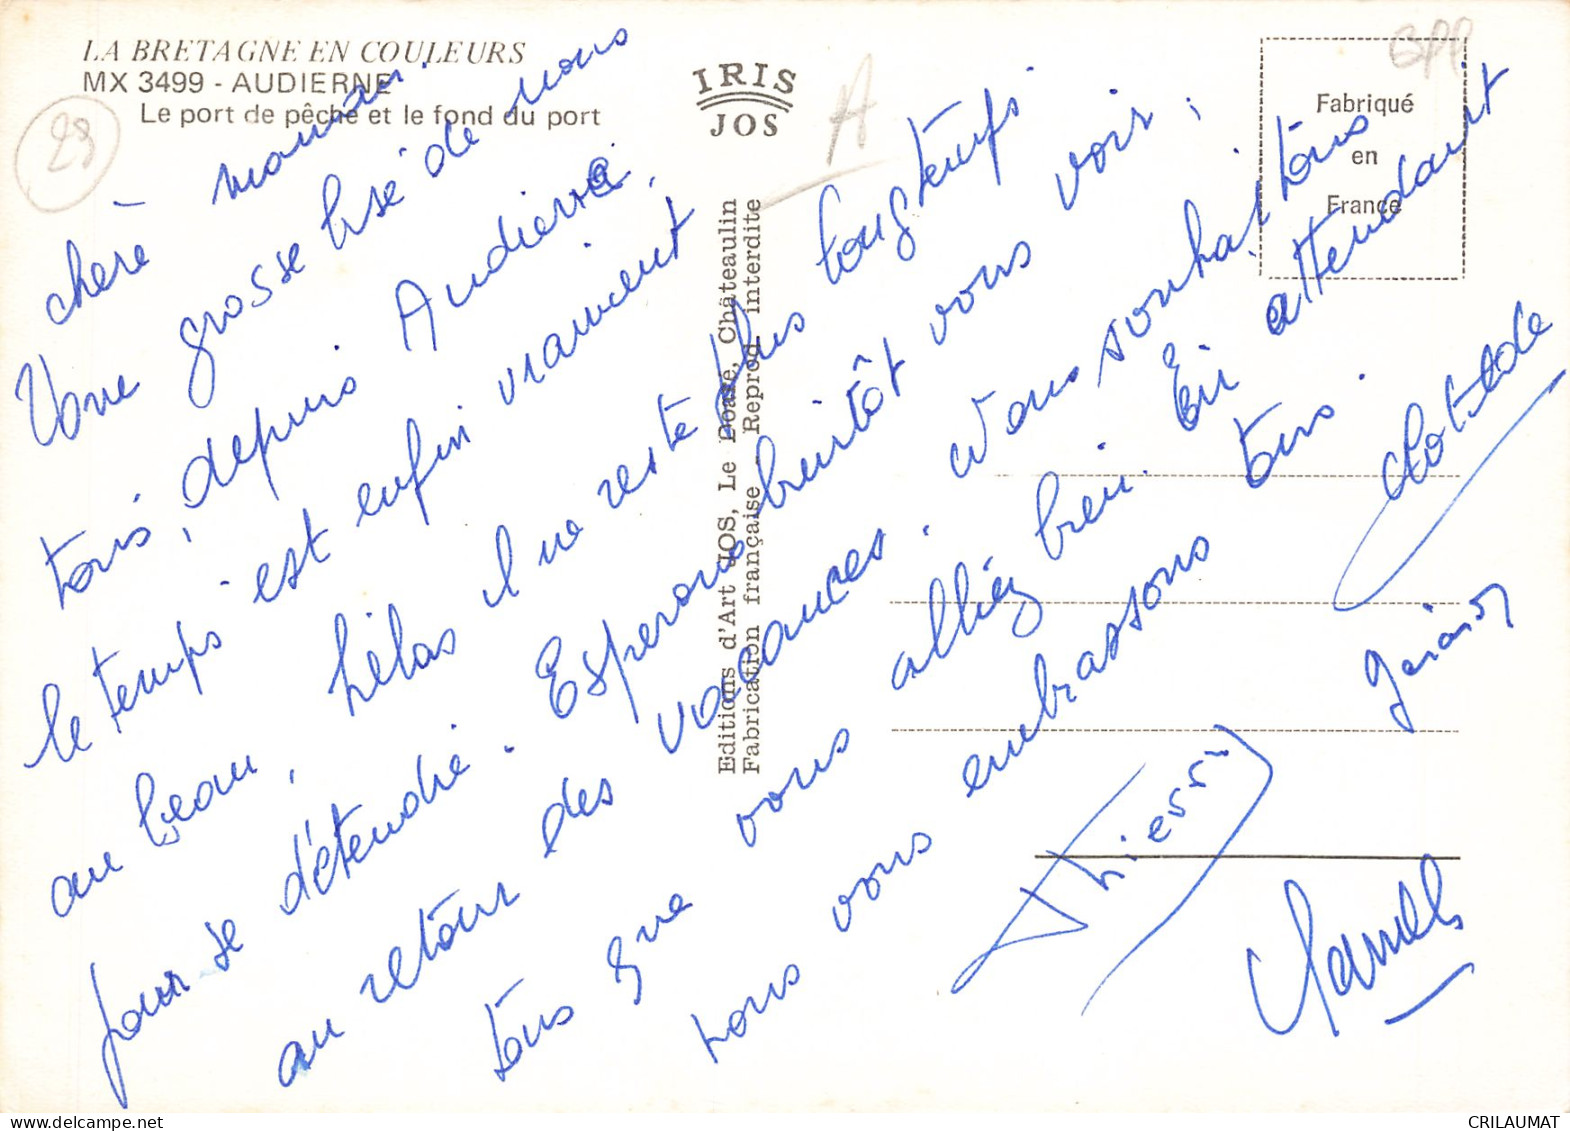 LA BRETAGNE EN COULEURS
MX 3499 - AUDIERNE
Le port de pêche et le fond du port
IRIS
JOS
Fabriqué
en
France
GPP
A
29
Editions d'Art JOS, Le Doaré, Châteaulin
Fabrication française - Reprod interdite
chère maman.
Une grosse bisé de nous
tous, depuis Audierne,
le temps est enfin vraiment
au beau, hélas il ne reste plus longtemps
pour se détendre. Esperons bientôt vous voir,
au retour des vacances. Nous souhaitons
tous que vous alliéz bien. En attendant
nous vous embrassons tous.
Clotilde
Gérard
Thierry
CRILAUMAT